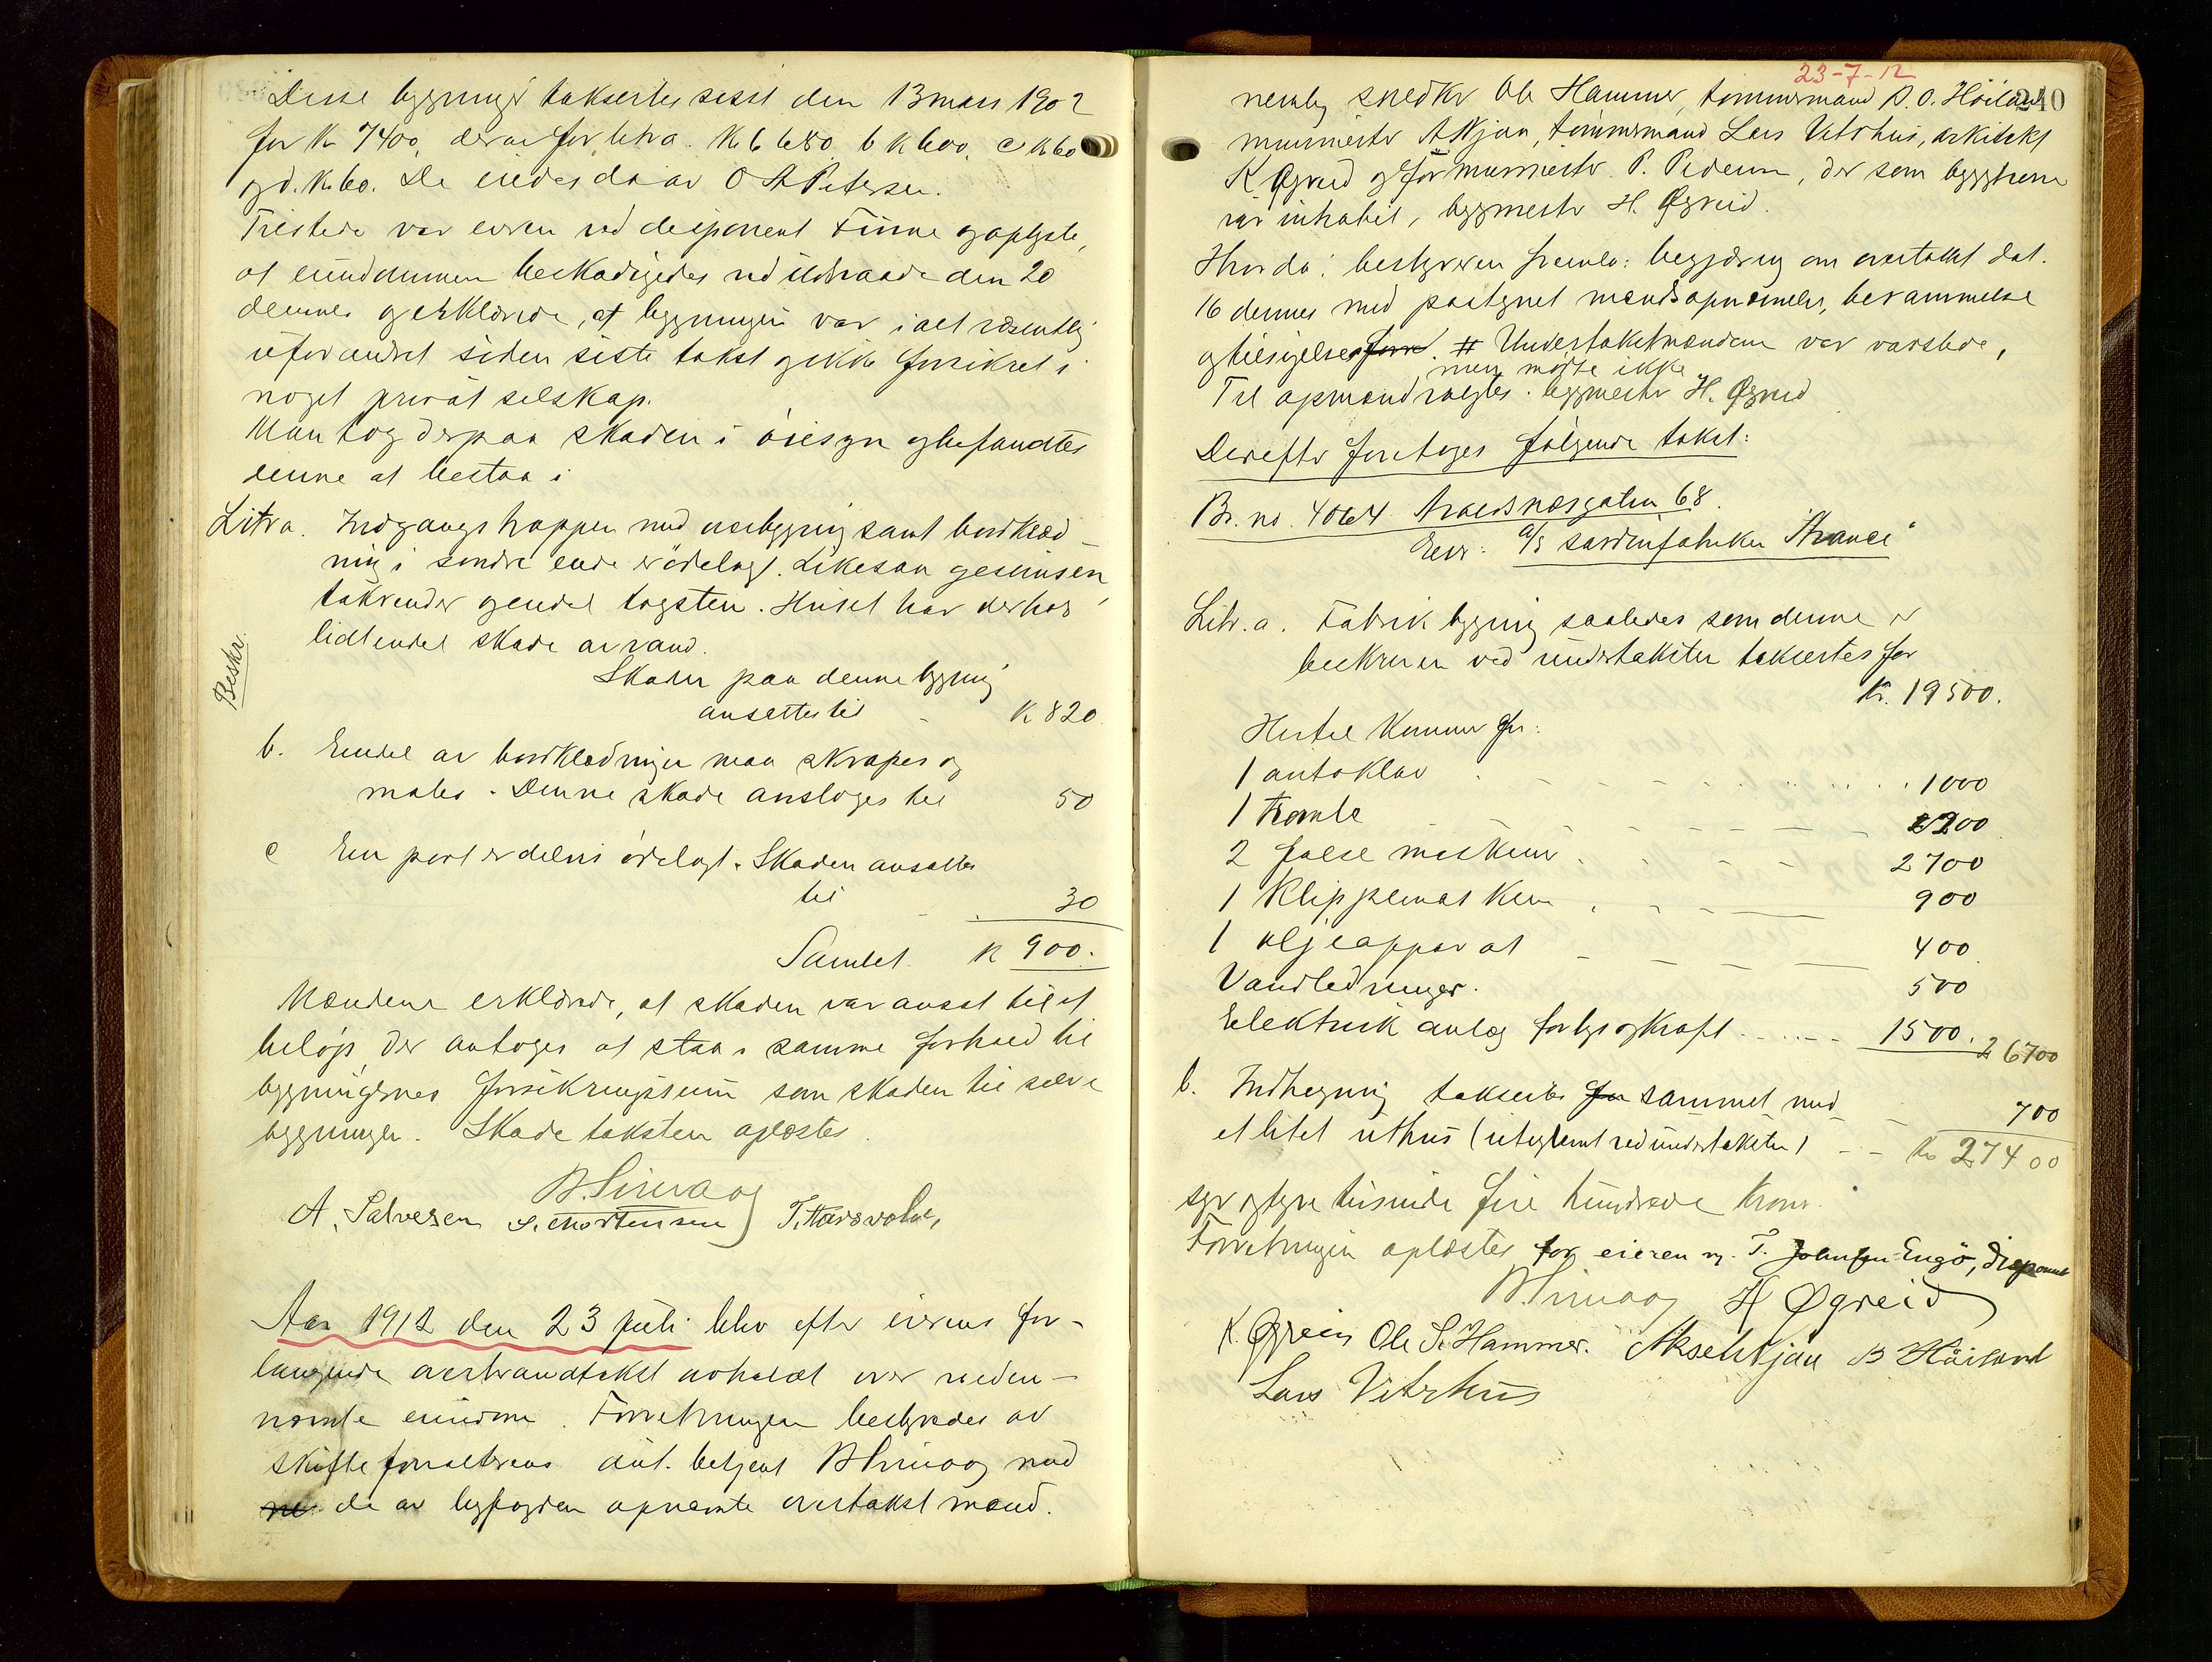 Disse bygninger takseertes sisst den 13 mars 1902
for Kr 7400, derav for litra. Kr 6680, b K 600, c Kr 60
og d. Kr. 60. De eiedes da av O A Petersen.
Tilstede var eieren ved disponent Finne og oplyste,
at eiendommen beskadigedes ved ildsvaade den 20
dennes og erklærede, at bygningen var i alt væsentlig
uforandret siden siste takst og ikke forsikret i
noget privat selskap.
Man tog derpaa skaden i öiesyn og befandtes
denne at bestaa i
Litra. Indgangstrappen med overbygning samt bordklæd-
ning i sondre ende er ödelagt. Likesaa gesimsen,
takrender og endel tagsten. Huset har derhos
lidt endel skade av vand.
Beskr.
Skaden paa denne bygning
ansættes til - K 820
b. Endel av bordklædningen maa skrapes og
males. Denne skade ansloges til 50
c En port er delvis ödelagt. Skaden ansattes
til - 30
Samlet K 900.
Mændene erklærede, at skaden var ansat til et
belöp, der antoges at staa i samme forhold til
bygningernes forsikringssum som skaden til selve
bygningen. Skadetaksten oplæstes.
A. Salvesen S. Mortensen
Aar 1912 den 23 juli blev efter eierens for-
langende overbrandtakst avholdt over neden-
nævnte eiendom. Forretningen bestyredes av
skifteforvalterens aut. betjent med
ne de av byfogden opnævnte overtakstmænd.
23-7-12
240
nemlig snedker Ole Hammer, tømmermand B. O. Höiland
murmester A Njaa, tömmermand Lars Vitrhus, arkitekt
K Øgreid og for murmester P. Pedersen, der som byggherre
var inhabil, byggmester H. Øgreid.
Hvorda: bestyreren fremla: begjæring om overtakst dat.
16 dennes med paategnet mandsopnævnelse, berammelse
og tilsigelse forv. # Undertakstmændene var varslede,
men mötte ikke
Til opmand valgtes byggmester H. Øgreid
Derefter foretoges følgende takst:
Br. no. 4064 Strandsnæsgaten 68.
Eier: A/S sardinfabriken
Litr. a. Fabrik bygning saaledes som denne er
beskreven ved undertaksten taksertes for
Kr. 19500.
Hertil kommer for:
1 autoklav 1000
1 tromle 200
2 false maskiner 2700
1 Klippemaskin 900
1 oljeapparat 400
Vandledninger. 500
Elektrisk anlæg for lys og kraft 1500. 26700
b. Indhegning taksertes for sammel med
700
et litet uthus (uteglemt ved undertaksten) - - Kr 27400
syv og tyve tusinde fire hundrede kroner.
Forretningen oplæstes for eieren v. T. Johnsen-Engö, disponent
H Øgreid
K. Øgreid Ole S. Hammer. Aksel Njaa B Höiland
Lars Vitrhus